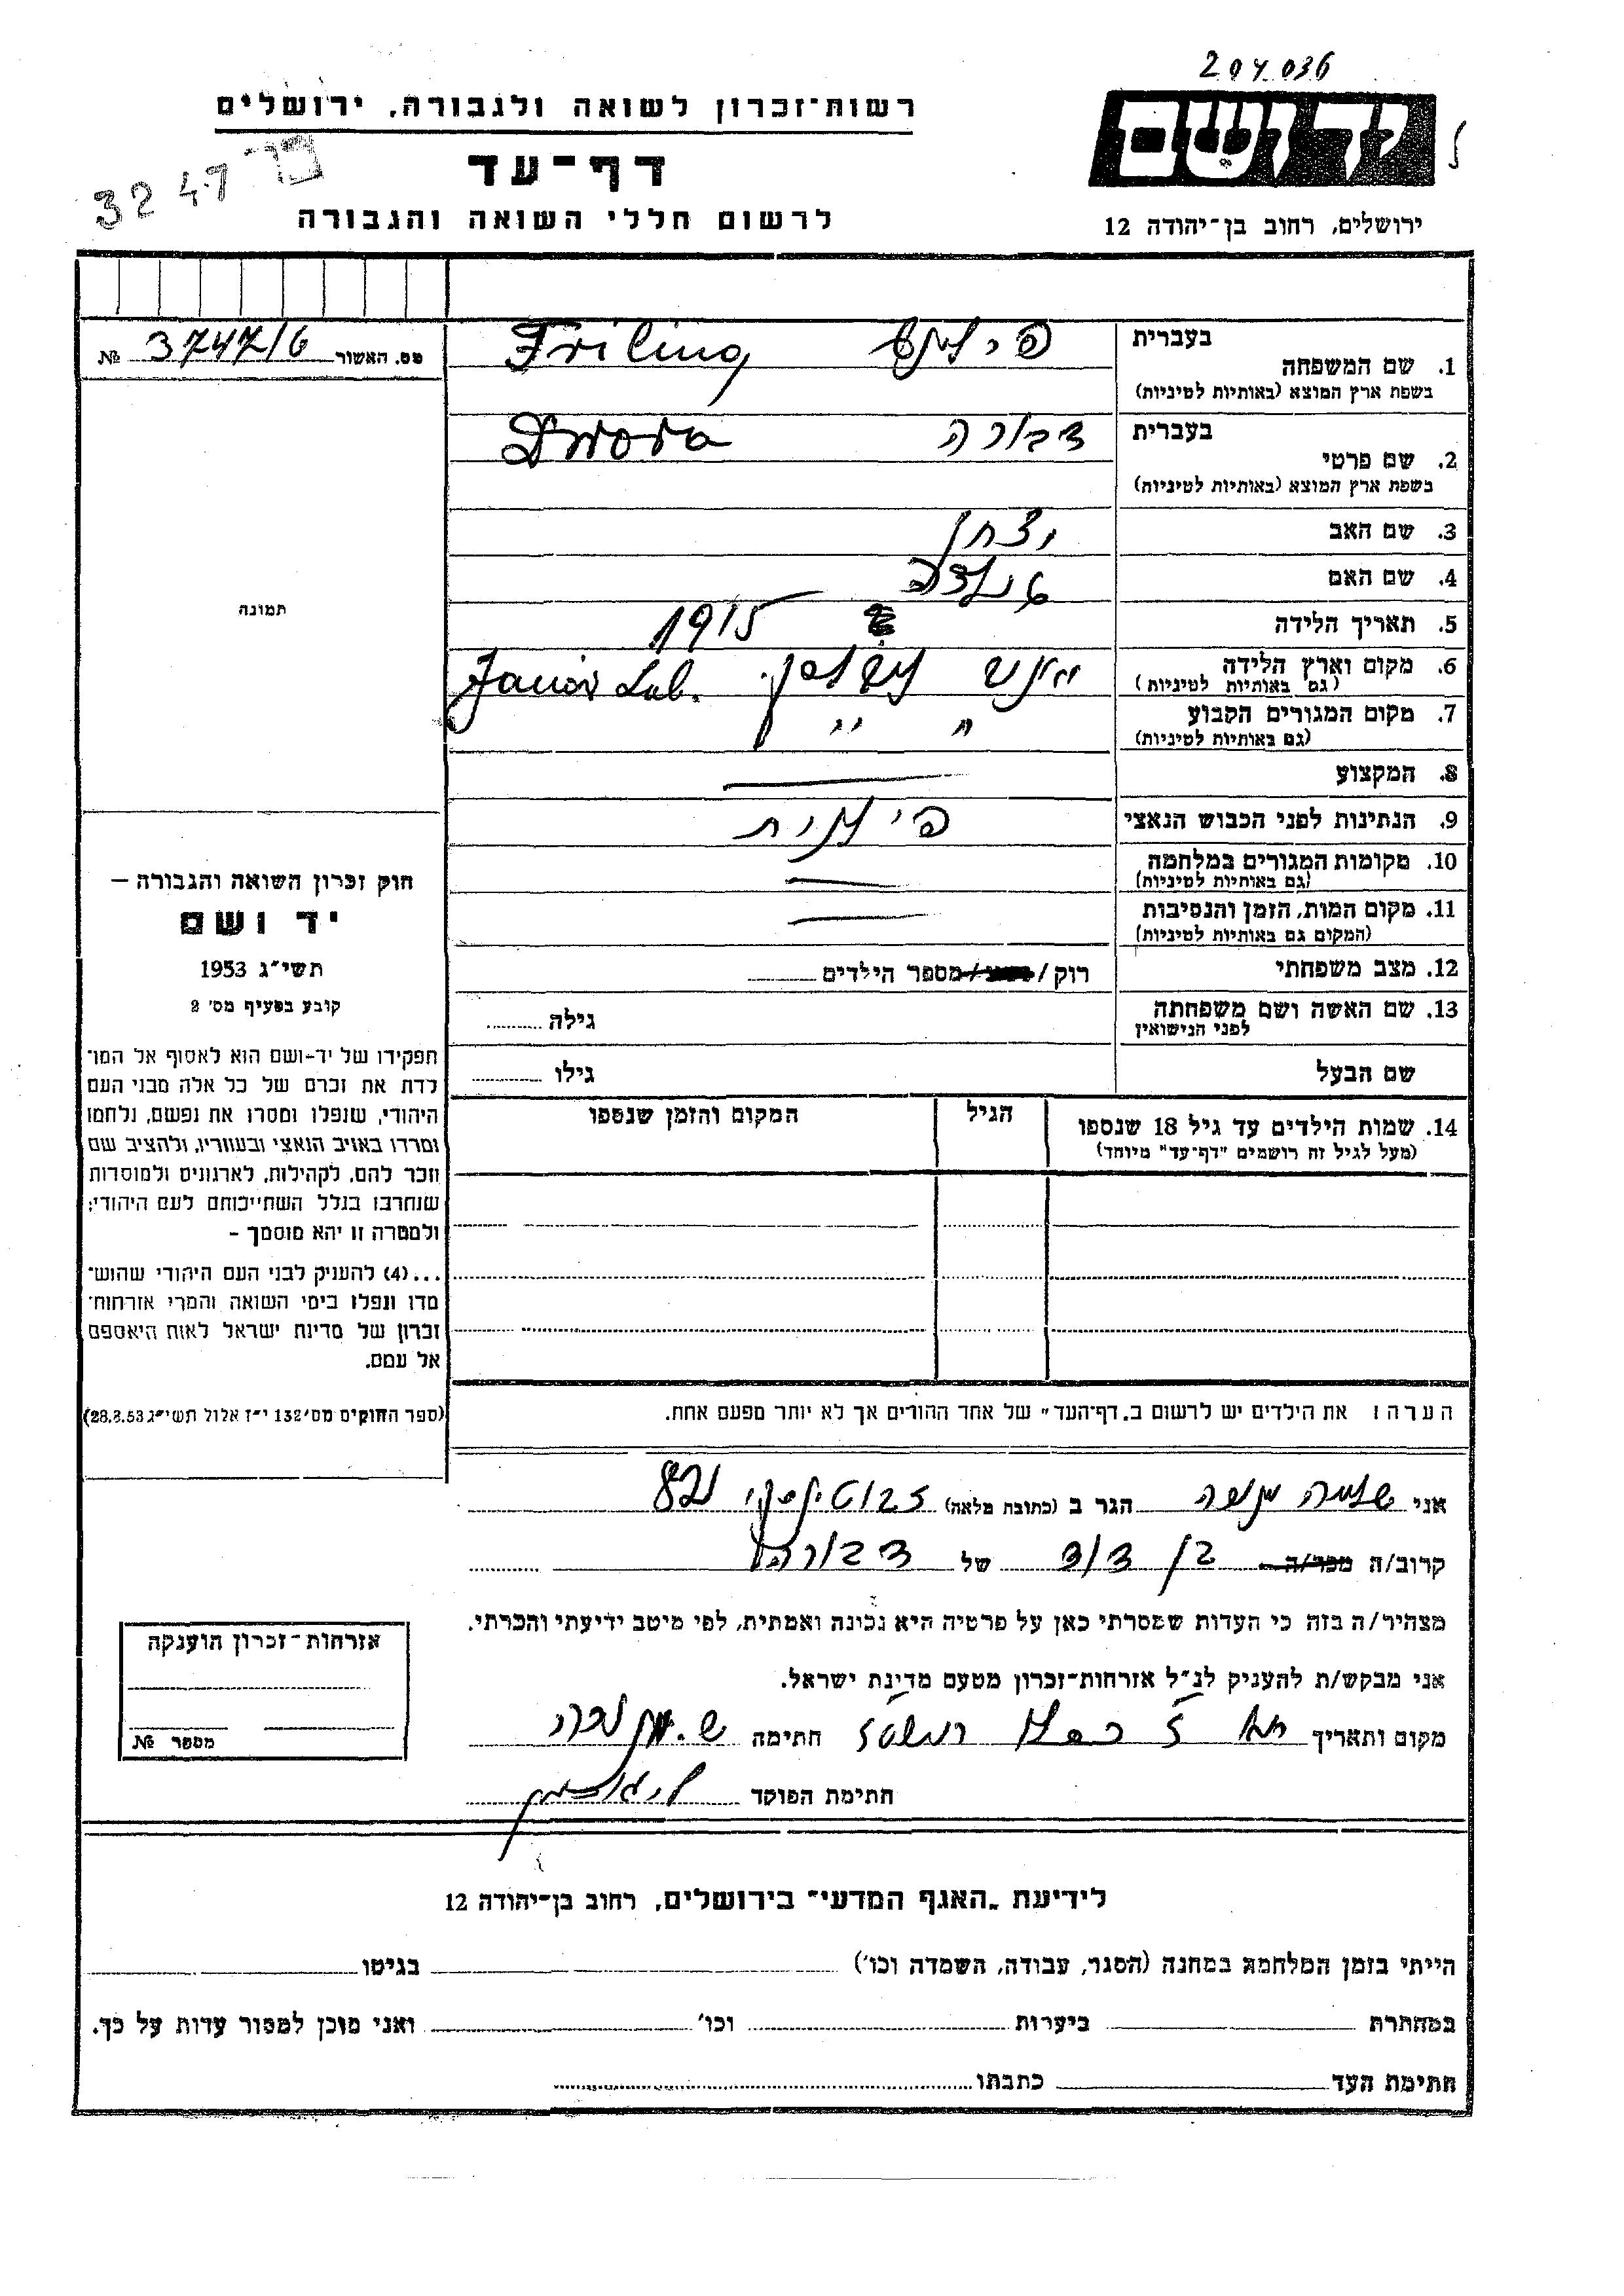 204036
רשות־זכרון לשואה ולגבורה, ירושלים
יד ושם
דף־עד
3247
לרשום חללי השואה והגבורה
ירושלים, רחוב בן־יהודה 12
מס. האשור 3747/6 №
1. שם המשפחה
בעברית
Friling
בשפת ארץ המוצא (באותיות לטיניות)
2. שם פרטי
בעברית דבורה
Dwora
בשפת ארץ המוצא (באותיות לטיניות)
3. שם האב
4. שם האם
5. תאריך הלידה 1915
6. מקום וארץ הלידה Janów Lub.
(גם באותיות לטיניות)
7. מקום המגורים הקבוע " "
(גם באותיות לטיניות)
8. המקצוע
9. הנתינות לפני הכבוש הנאצי
10. מקומות המגורים במלחמה
(גם באותיות לטיניות)
11. מקום המות, הזמן והנסיבות
(המקום גם באותיות לטיניות)
12. מצב משפחתי רוק / מספר הילדים
13. שם האשה ושם משפחתה
לפני הנישואין
גילה
שם הבעל גילו
14. שמות הילדים עד גיל 18 שנספו
(מעל לגיל זה רושמים "דף־עד" מיוחד)
הגיל
המקום והזמן שנספו
תמונה
חוק זכרון השואה והגבורה —
יד ושם
תשי״ג 1953
קובע בסעיף מס' 2
תפקידו של יד-ושם הוא לאסוף אל המו־
לדת את זכרם של כל אלה מבני העם
היהודי, שנפלו ומסרו את נפשם, נלחמו
ומרדו באויב הנאצי ובעוזריו, ולהציב שם
וזכר להם, לקהילות, לארגונים ולמוסדות
שנחרבו בגלל השתייכותם לעם היהודי;
ולמטרה זו יהא מוסמך –
...(4) להעניק לבני העם היהודי שהוש־
מדו ונפלו בימי השואה והמרי אזרחות־
זכרון של מדינת ישראל לאות היאספם
אל עמם.
(ספר החוקים מס' 132 י״ז אלול תשי״ג 28.8.53)
הערה: את הילדים יש לרשום ב„דף־העד" של אחד ההורים אך לא יותר מפעם אחת.
אני הגר ב (כתובת מלאה) ז'בוטינסקי
קרוב/ה מכר/ה בן דוד של דבורה
מצהיר/ה בזה כי העדות שמסרתי כאן על פרטיה היא נכונה ואמתית, לפי מיטב ידיעתי והכרתי.
אני מבקש/ת להעניק לנ״ל אזרחות־זכרון מטעם מדינת ישראל.
מקום ותאריך חתימה
חתימת הפוקד
אזרחות־זכרון הוענקה
מספר №
לידיעת „האגף המדעי" בירושלים, רחוב בן־יהודה 12
הייתי בזמן המלחמה במחנה (הסגר, עבודה, השמדה וכו') בגיטו
במחתרת ביערות וכו' ואני מוכן למסור עדות על כך.
חתימת העד כתבתו